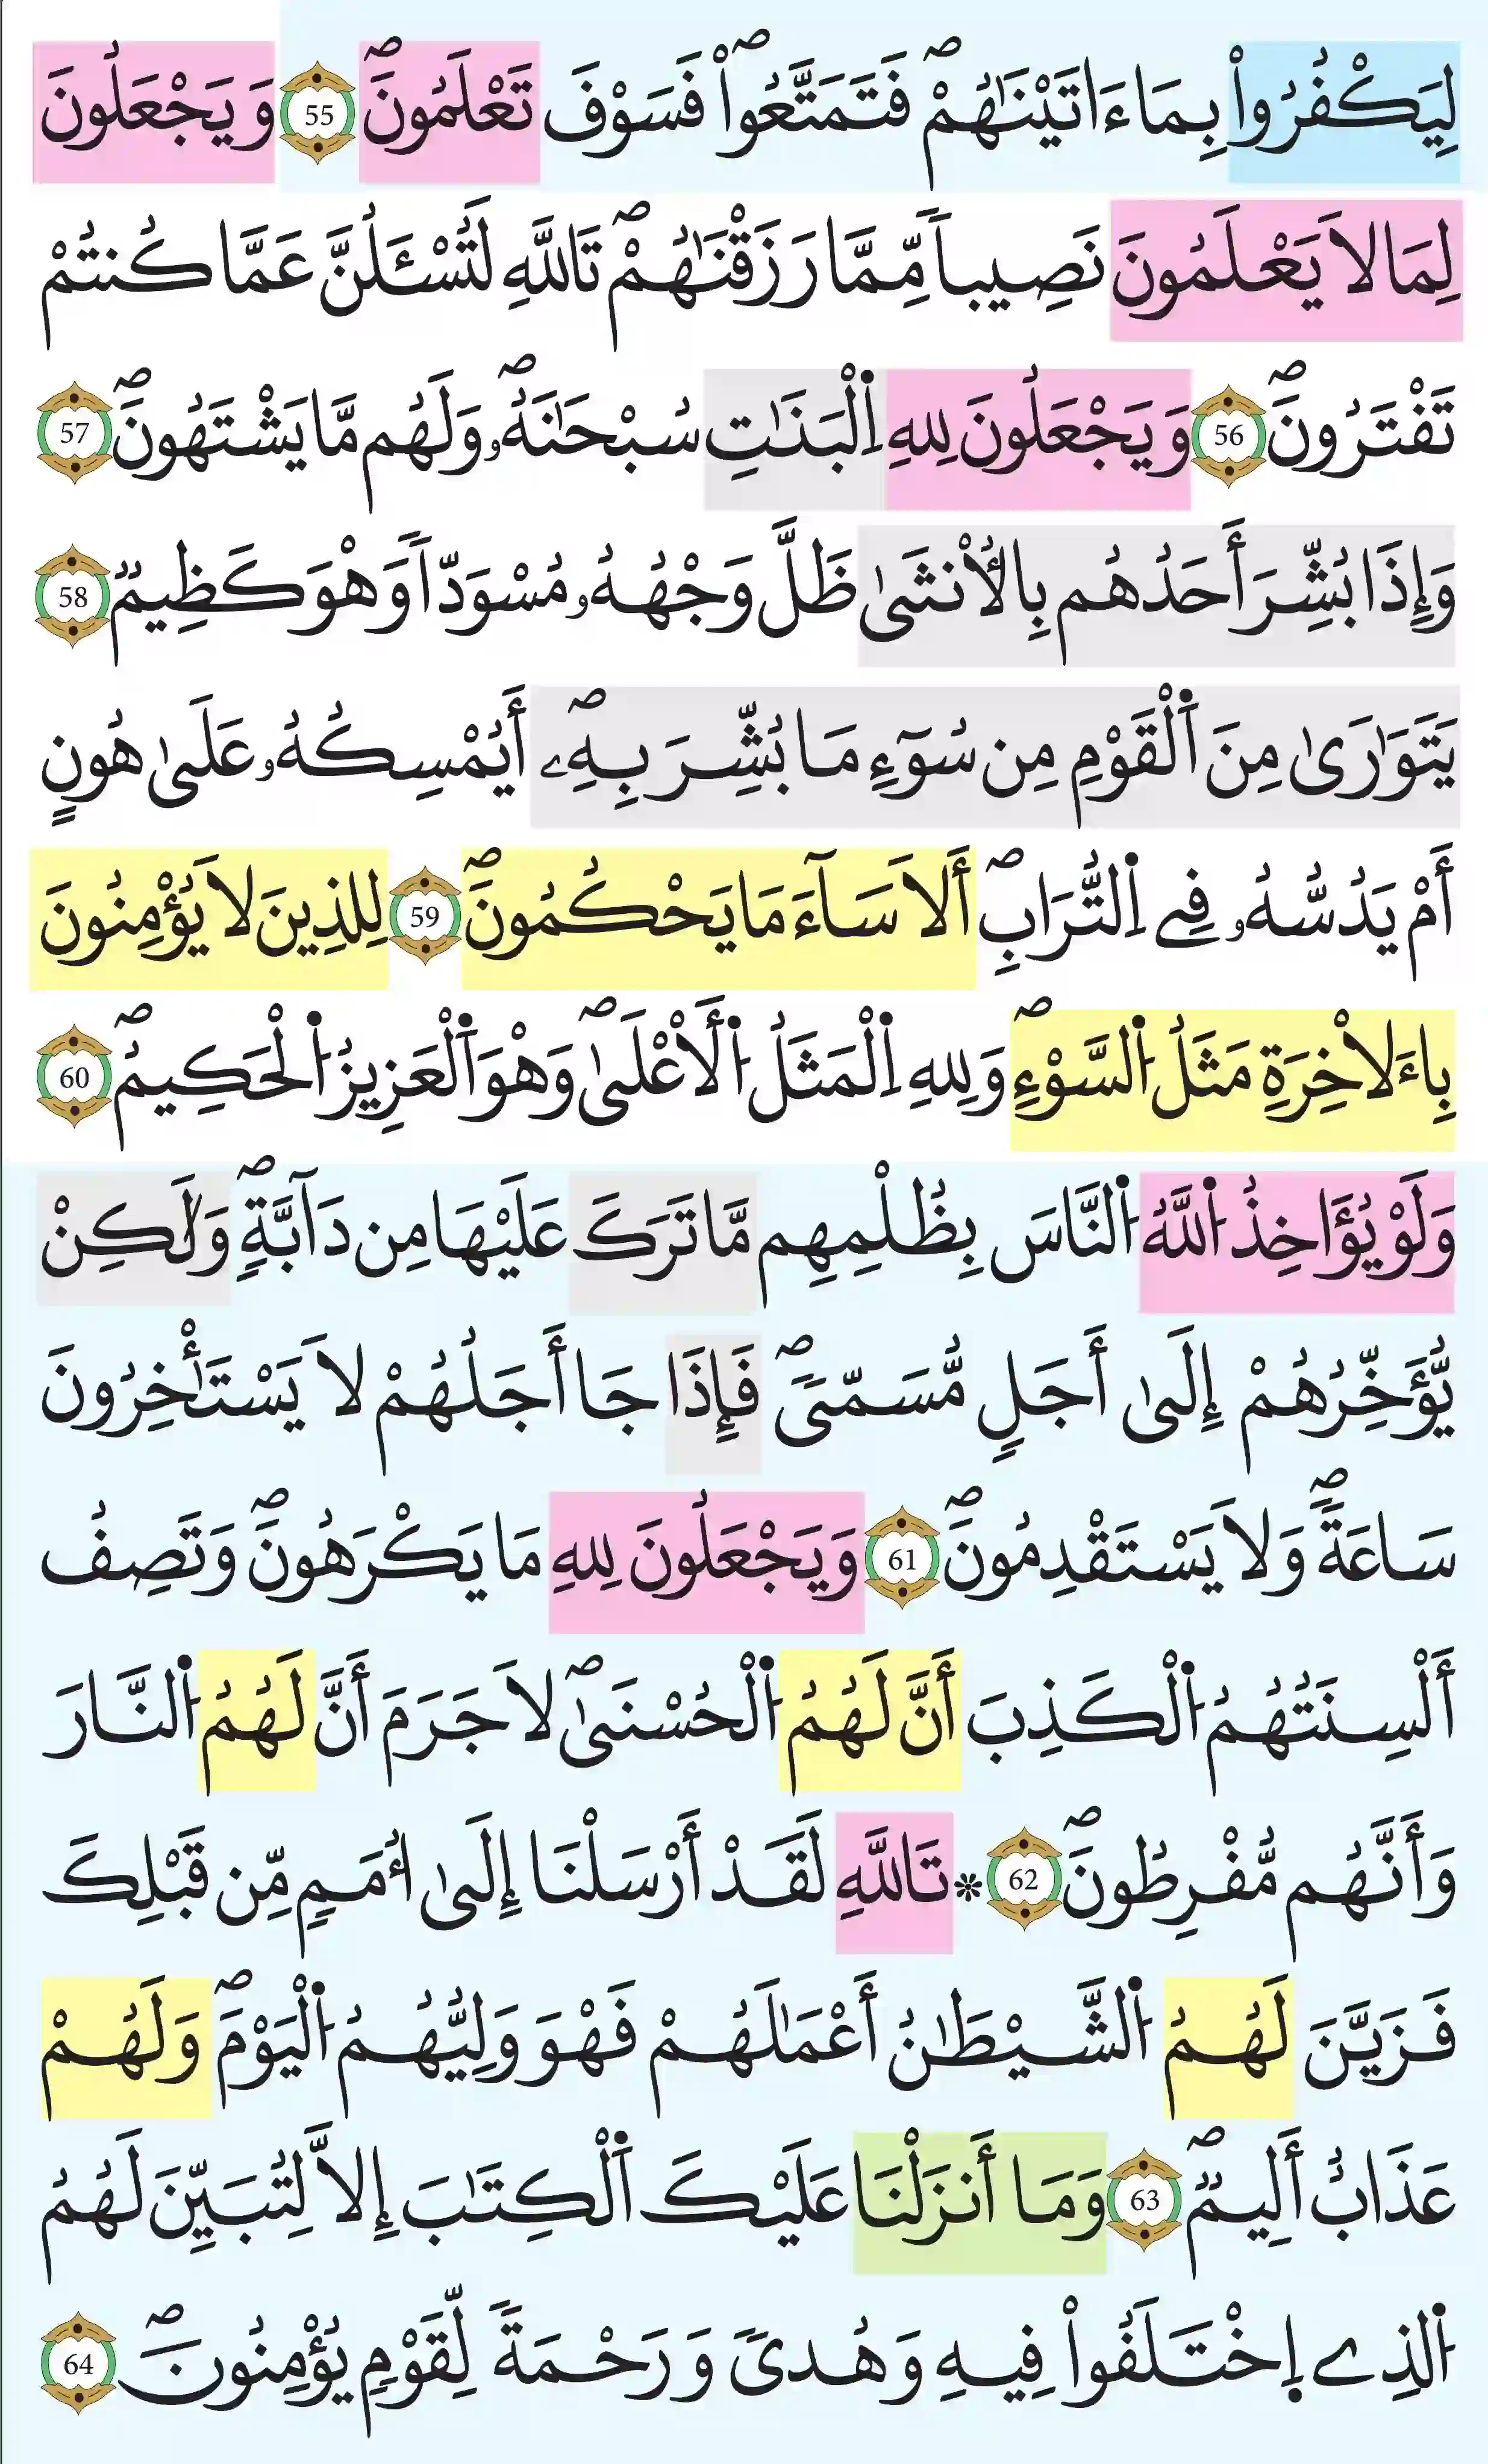 لِيَكْفُرُواْ بِمَا ءَاتَيْنَٰهُمْۖ فَتَمَتَّعُواْۖ فَسَوْفَ تَعْلَمُونَۖ 55 وَيَجْعَلُونَ
لِمَا لَا يَعْلَمُونَ نَصِيباٗ مِّمَّا رَزَقْنَٰهُمْۖ تَاللَّهِ لَتُسْـَٔلُنَّ عَمَّا كُنتُمْ
تَفْتَرُونَۖ 56 وَيَجْعَلُونَ لِلهِ اِ۬لْبَنَٰتِ سُبْحَٰنَهُۥۖ وَلَهُم مَّا يَشْتَهُونَۖ 57
وَإِذَا بُشِّرَ أَحَدُهُم بِالُانث۪ىٰ ظَلَّ وَجْهُهُۥ مُسْوَدّاٗ وَهْوَ كَظِيمٞۖ 58
يَتَوَٰر۪ىٰ مِنَ اَ۬لْقَوْمِ مِن سُوٓءِ مَا بُشِّرَ بِهِۦۖ أَيُمْسِكُهُۥ عَلَىٰ هُونٍ
أَمْ يَدُسُّهُۥ فِے اِ۬لتُّرَابِۖ أَلَا سَآءَ مَا يَحْكُمُونَۖ 59 لِلذِينَ لَا يُؤْمِنُونَ
بِاءَلَاخِرَةِ مَثَلُ اُ۬لسَّوْءِۖ وَلِلهِ اِ۬لْمَثَلُ اُ۬لَاعْلَىٰۖ وَهْوَ اَ۬لْعَزِيزُ اُ۬لْحَكِيمُۖ 60
وَلَوْ يُؤَاخِذُ اُ۬للَّهُ اُ۬لنَّاسَ بِظُلْمِهِم مَّا تَرَكَ عَلَيْهَا مِن دَآبَّةٖۖ وَلَٰكِنْ
يُّؤَخِّرُهُمْ إِلَىٰ أَجَلٖ مُّسَمّىٗۖ فَإِذَا جَا أَجَلُهُمْ لَا يَسْتَـْٔخِرُونَ
سَاعَةٗۖ وَلَا يَسْتَقْدِمُونَۖ 61 وَيَجْعَلُونَ لِلهِ مَا يَكْرَهُونَۖ وَتَصِفُ
أَلْسِنَتُهُمُ اُ۬لْكَذِبَ أَنَّ لَهُمُ اُ۬لْحُسْن۪ىٰۖ لَا جَرَمَ أَنَّ لَهُمُ اُ۬لنَّارَ
وَأَنَّهُم مُّفْرَطُونَۖ 62 ۞ تَاللَّهِ لَقَدْ أَرْسَلْنَا إِلَىٰ أُمَمٖ مِّن قَبْلِكَ
فَزَيَّنَ لَهُمُ اُ۬لشَّيْطَٰنُ أَعْمَٰلَهُمْ فَهْوَ وَلِيُّهُمُ اُ۬لْيَوْمَۖ وَلَهُمْ
عَذَابٌ أَلِيمٞۖ 63 وَمَا أَنزَلْنَا عَلَيْكَ اَ۬لْكِتَٰبَ إِلَّا لِتُبَيِّنَ لَهُمُ
اُ۬لذِے اِ۪خْتَلَفُواْ فِيهِ وَهُدىٗ وَرَحْمَةٗ لِّقَوْمٖ يُؤْمِنُونَۖ 64